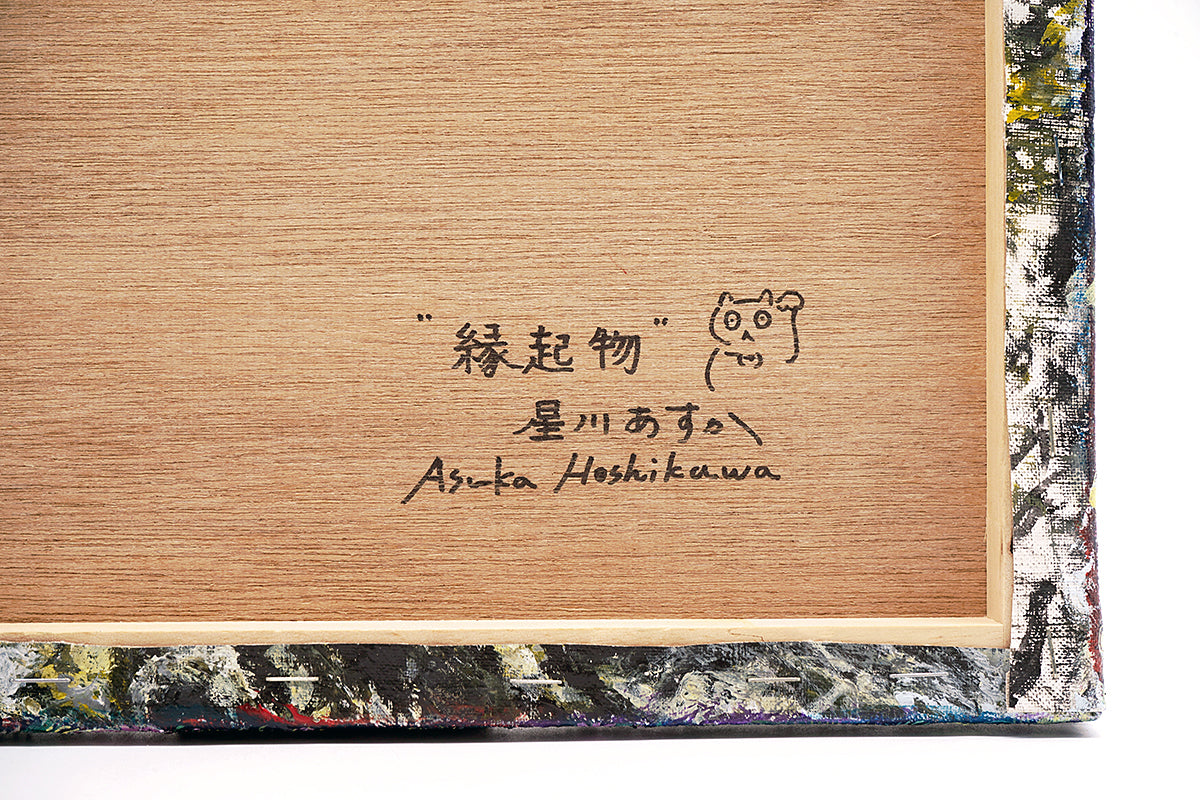 "縁起物"
星川あすか
Asuka Hoshikawa